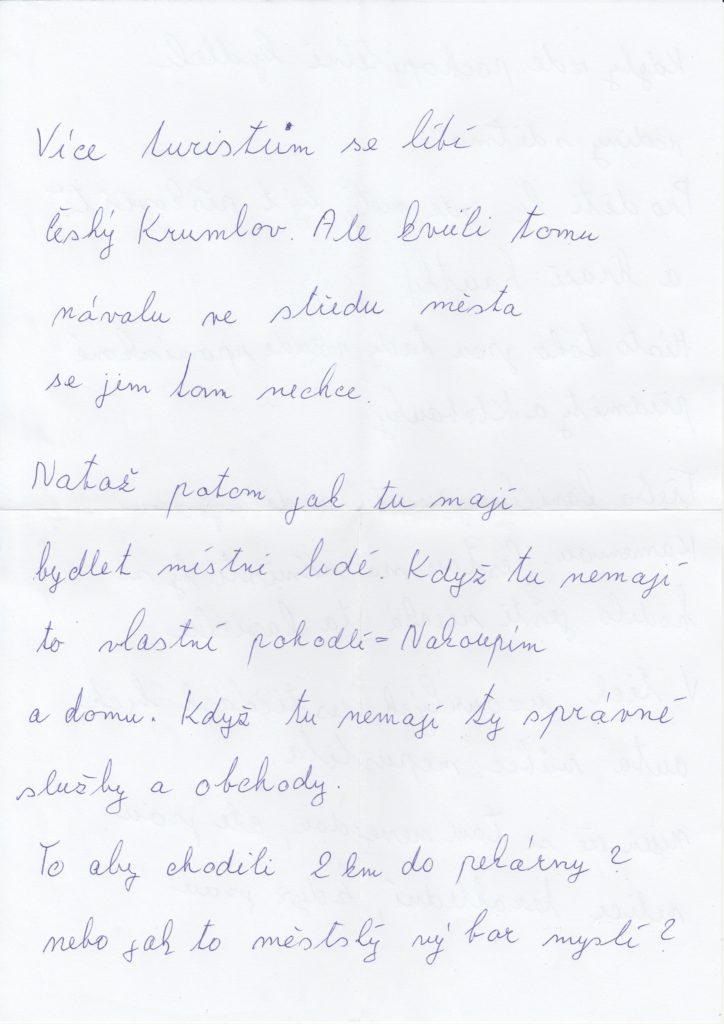 Více turistům se líbí
český Krumlov. Ale kvůli tomu
návalu ve středu města
se jim tam nechce.
Natož potom jak tu mají
bydlet místní lidé. Když tu nemají
to vlastní pohodlí = Nakoupím
a domu. Když tu nemají ty správné
služby a obchody.
To aby chodili 2 km do pekárny?
nebo jak to městský vý bor myslí?